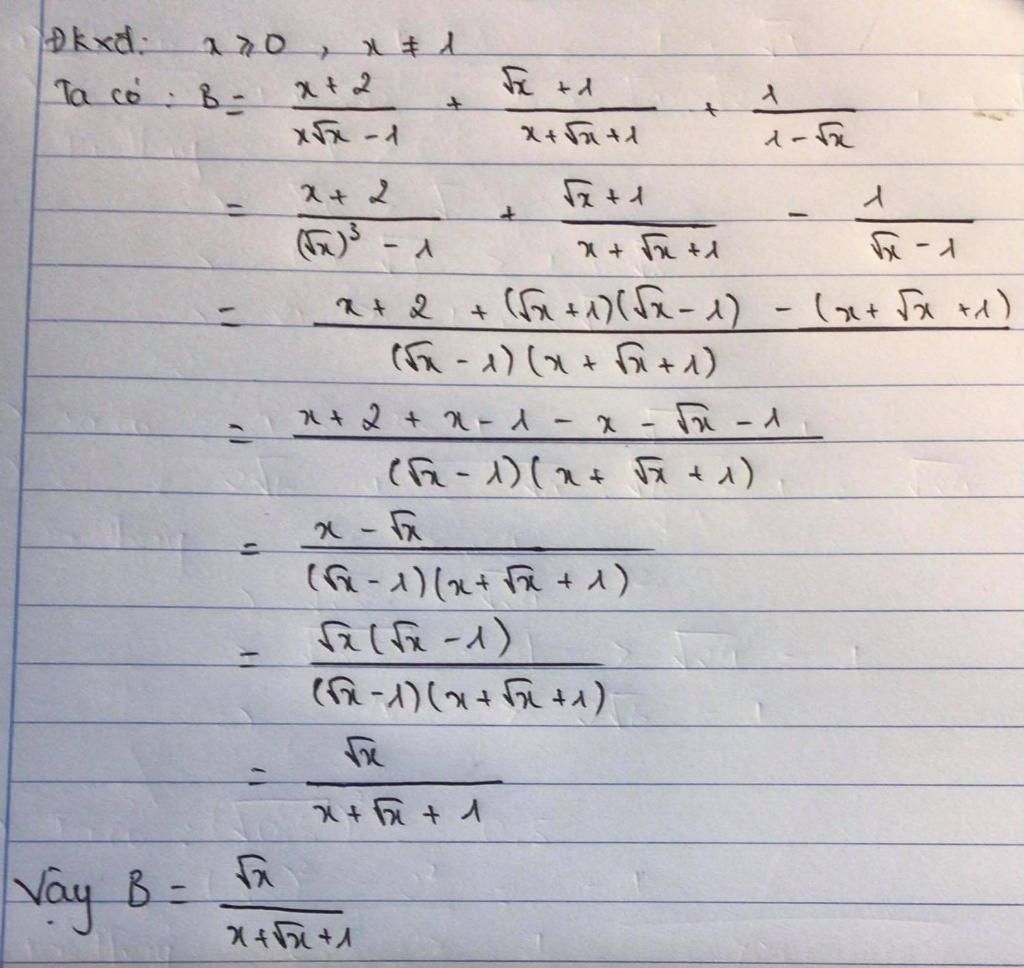 Đkxđ: x ⩾ 0 , x ≠ 1
Ta có : B = (x + 2)/(x√x - 1) + (√x + 1)/(x + √x + 1) + 1/(1 - √x)
= (x + 2)/((√x)³ - 1) + (√x + 1)/(x + √x + 1) - 1/(√x - 1)
= (x + 2 + (√x + 1)(√x - 1) - (x + √x + 1))/((√x - 1)(x + √x + 1))
= (x + 2 + x - 1 - x - √x - 1)/((√x - 1)(x + √x + 1))
= (x - √x)/((√x - 1)(x + √x + 1))
= (√x(√x - 1))/((√x - 1)(x + √x + 1))
= √x/(x + √x + 1)
Vậy B = √x/(x + √x + 1)